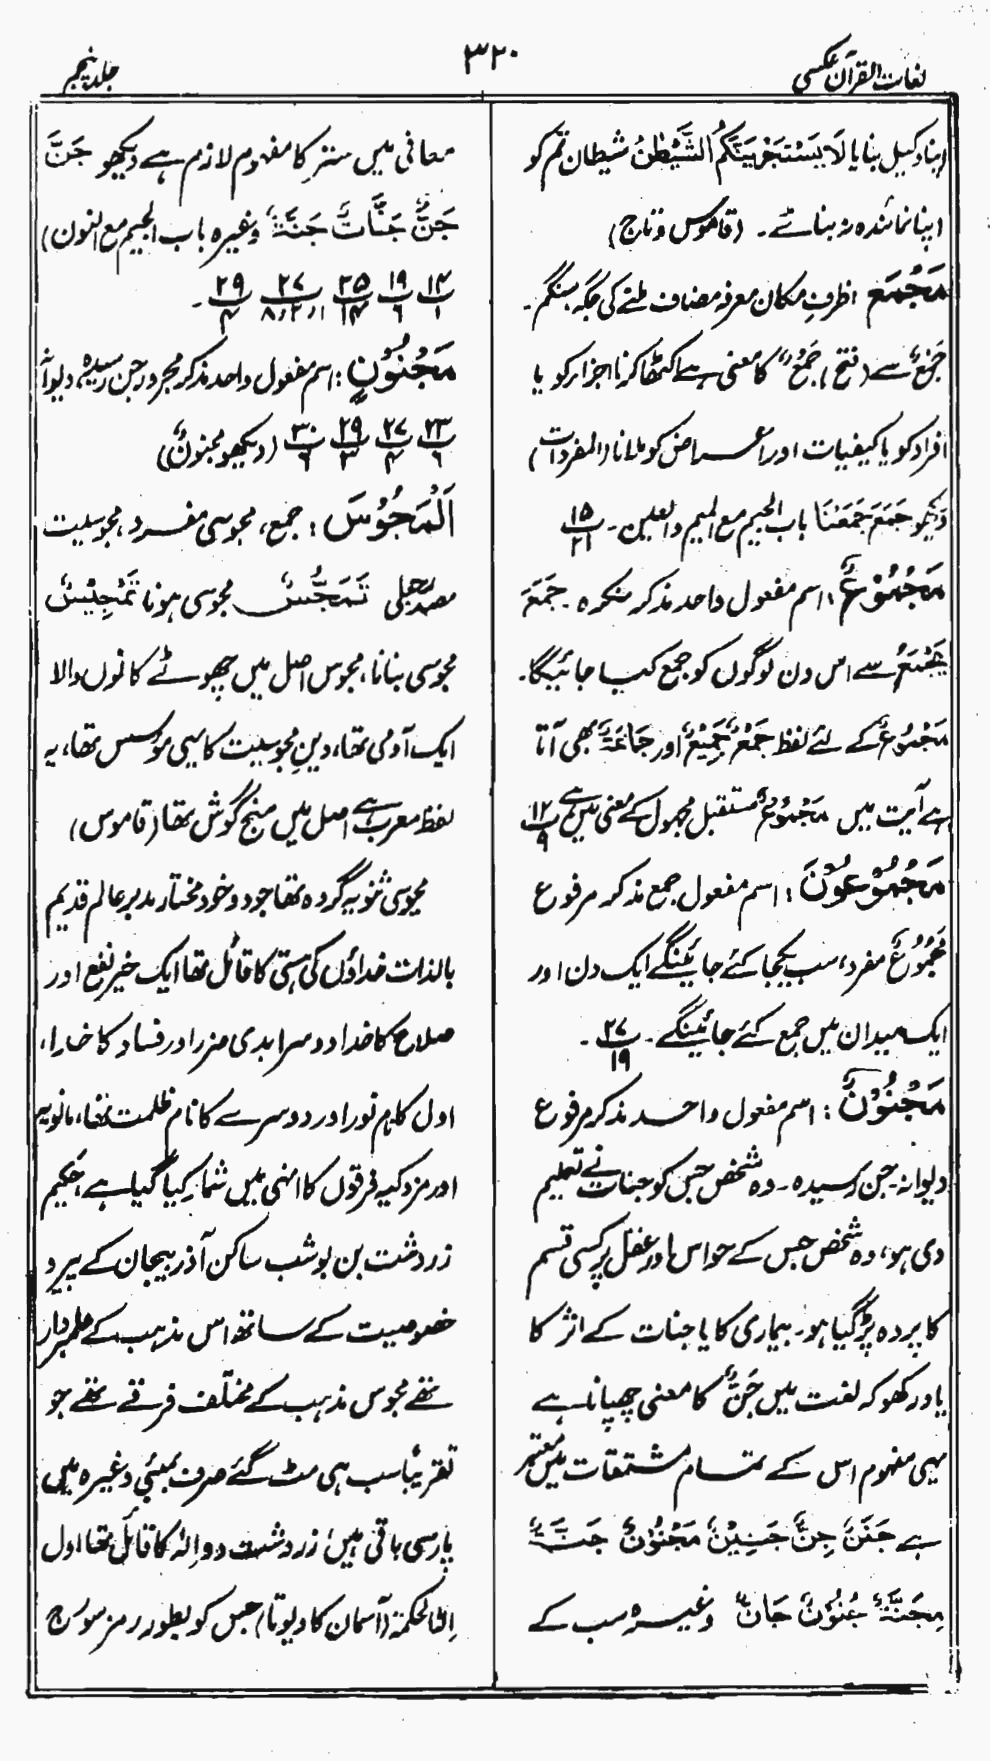 لغات القرآن عکسی
۳۲۰
جلد پنجم
اپنا وکیل بنایا لَا یَسْتَجْرِیَنَّکُمُ الشَّیْطٰنُ شیطان تم کو
اپنا نمائندہ نہ بنائے۔ (قاموس وتاج)
مَجْمَعَ اظرفِ مکان معرفہ مضاف ملنے کی جگہ سنگم۔
جَمْعٌ سے (فتح) جَمْعٌ کا معنی ہے اکٹھا کرنا اجزاء کو یا
افراد کو یا کیفیات اور اعراض کو ملانا (المفردات)
دیکھو جَمَعَ جَمَعْنَا باب الجیم مع المیم والعین۔ ۱۵/۲۱
مَجْمُوْعٌ: اسم مفعول واحد مذکر منکرہ۔ جَمَعَ
یَجْمَعُ سے اس دن لوگوں کو جمع کیا جائیگا۔
مَجْمُوْعٌ کے لئے لفظ جَمْعٌ جَمِیْعٌ اور جَمَاعَۃٌ بھی آتا
ہے آیت میں مَجْمُوْعٌ مستقبل مجہول کے معنی میں ہے ۱۲/۹
مَجْمُوْعُوْنَ: اسم مفعول جمع مذکر مرفوع
مَجْمُوْعٌ مفرد، سب یکجا کئے جائینگے ایک دن اور
ایک میدان میں جمع کئے جائینگے۔ ۲۷/۱۹۔
مَجْنُوْنٌ: اسم مفعول واحد مذکر مرفوع
دیوانہ۔ جن رسیدہ۔ وہ شخص جس کو جنات نے تعلیم
دی ہو، وہ شخص جس کے حواس اور عقل پر کسی قسم
کا پردہ پڑ گیا ہو۔ بیماری کا یا جنات کے اثر کا
یاد رکھو کہ لغت میں جَنٌّ کا معنی چھپانا ہے
یہی مفہوم اس کے تمام مشتقات میں معتبر
ہے جَنَنٌ جِنٌّ جَنِیْنٌ مَجْنُوْنٌ جَنَّۃٌ
مِجَنَّۃٌ جُنُوْنٌ جَانٌّ وغیرہ سب کے
معانی میں ستر کا مفہوم لازم ہے دیکھو جَنَّ
جَنٌّ جَنَّاتٌ جَنَّۃٌ وغیرہ باب الجیم مع النون)
۱۴/۱ ۱۹/۶ ۲۵/۱۴ ۲۷/۸،۲،۱ ۲۹/۴۔
مَجْنُوْنٍ: اسم مفعول واحد مذکر مجرور جن رسیدہ، دیوانہ
۲۳/۶ ۲۷/۴ ۲۹/۳ ۳۰/۶ (دیکھو مجنونٌ)
اَلْمَجُوْسَ: جمع، مجوسی مفرد، مجوسیت
مصدر جعلی تَمَجُّسٌ مجوسی ہونا تَمْجِیْسٌ
مجوسی بنانا، مجوس اصل میں چھوٹے کانوں والا
ایک آدمی تھا، دینِ مجوسیت کا یہی مؤسس تھا، یہ
لفظ معرب ہے اصل میں منج گوش تھا (قاموس)
مجوسی ثنویہ گروہ تھا جو دو خود مختار مدبر عالم قدیم
بالذات خداؤں کی ہستی کا قائل تھا ایک خیر نفع اور
صلاح کا خدا دوسرا بدی ضرر اور فساد کا خدا،
اول کا نام نور اور دوسرے کا نام ظلمت تھا، مانویہ
اور مزدکیہ فرقوں کا انہی میں شمار کیا گیا ہے، حکیم
زردشت بن بوشب ساکن آذربیجان کے پیرو
خصوصیت کے ساتھ اس مذہب کے علمبردار
تھے مجوس مذہب کے مختلف فرقے تھے جو
تقریباً سب ہی مٹ گئے صرف بمبئی وغیرہ میں
پارسی باقی ہیں، زردشت دو الٰہ کا قائل تھا اول
الٰہ الحکمۃ (آسمان کا دیوتا) جس کو بطور رمز سورج